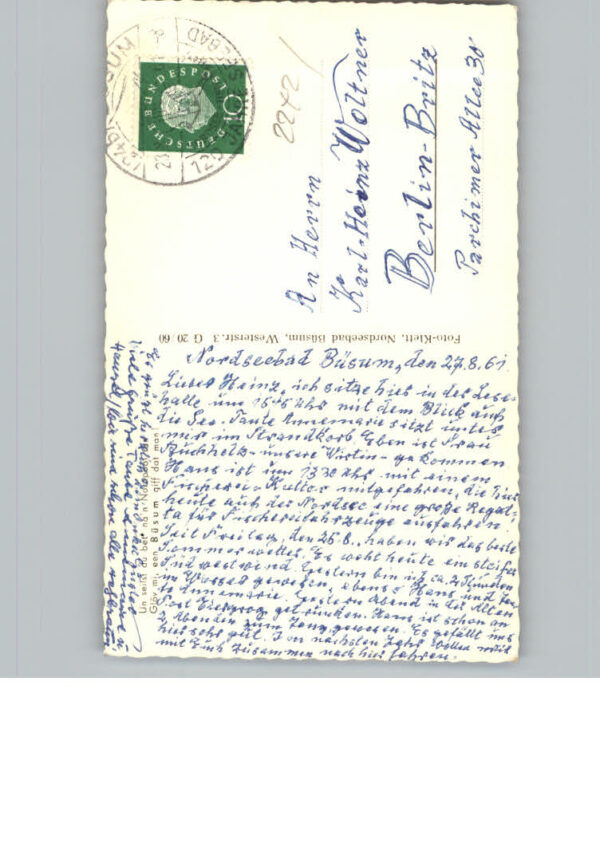 Nordseebad Büsum, den 27.8.61
Lieber Heinz, ich sitze hier in der Lese-
halle um 15 45 Uhr mit dem Blick auf
die See. Tante Annemarie sitzt unten
im Strandkorb. Eben ist Frau
Buchholz - unsere Wirtin - gekommen
Hans ist um 13 30 Uhr mit einem
Fischerei-Kutter mitgefahren, die hier
heute auf der Nordsee eine große Regat-
ta für Fischereifahrzeuge ausfahren
Seit Freitag, den 25.8., haben wir das beste
Sommerwetter. Es weht heute ein steifer
Südwestwind. Gestern bin ich ca. 2 Stunden
im Wasser gewesen, ebenso Hans und
Annemarie. Gestern Abend in der Alten
Post Eiergrog getrunken. Hans ist schon an
2 Abenden zum Tanz gewesen. Es gefällt uns
hier sehr gut. Im nächsten Jahr wollen wir
mit Euch zusammen nach hier fahren.
Es grüßt herzlich
Viele Grüße Tante Annemarie u.
Un seilst du bet na'n Noordpol
Gröv mi, een Büsum giff dat man!
Foto-Klett, Nordseebad Büsum, Westerstr. 3 G 20 60
An Herrn
Karl-Heinz Woltner
Berlin-Britz
Parchimer Allee 30
2242
DEUTSCHE BUNDESPOST
10
(24b) BÜSUM